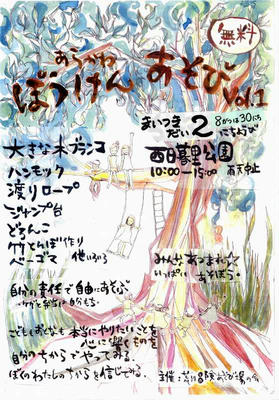 無料
あらかわ
ぼうけん あそび Vol.1
まいつき だい2 にちようび
8がつは30にち
西日暮里公園
10:00–15:00 雨天中止
大きな木ブランコ
ハンモック
渡りロープ
ジャンプ台
どろんこ
竹とんぼ作り
ベーゴマ 他いろいろ
みんなあつまれ☆
いっぱいあそぼう。
自分の責任で自由にあそぶ
ケガと弁当は自分もち
こどももおとなも 本当にやりたいことを
心に響くものを
自分のちからでやってみる。
ぼくのわたしのちからを信じてみる。
主催：荒川冒険あそび場の会